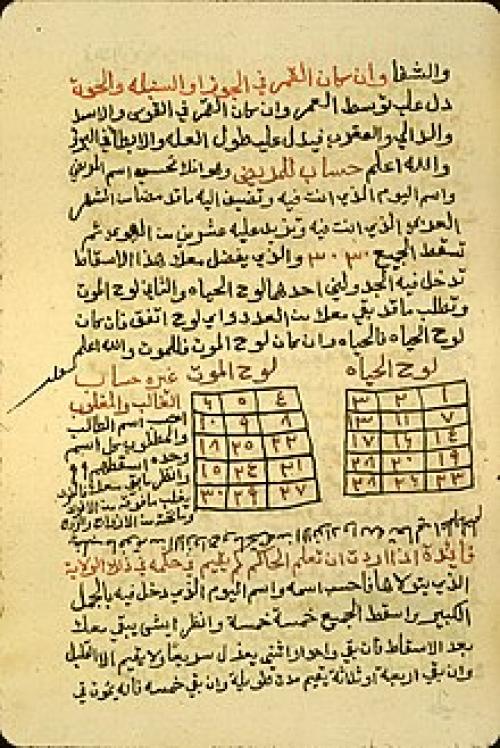 والشفا وان كان القمر في الجوزا او السنبله والحوت
دل على توسط العمر وان كان القمر في القوس والاسد
والدالي والعقرب فيدل على طول العله والابطا في البرو
والله اعلم حساب للمريض وهو انك تحسب اسم المريض
واسم اليوم الذي انت فيه وتضيف اليه ما قد مضا من الشهر
العربي الذي انت فيه وتزيد عليه عشرين من العدد ثم
تسقط الجميع ٣٠ ٣٠ والذي يفضل معك بعد الاسقاط
تدخل فيه الجدولين احدهما لوح الحياه والثاني لوح الموت
وتطلب ما قد بقي معك من العدد واي لوح اتفق فان كان
لوح الحياه فالحياه وان كان لوح الموت فالموت والله اعلم
لوح الحياه
١ ٢ ٣
٧ ١١ ١٣
١٤ ١٦ ١٧
١٩ ٢٠
٢٣ ٢٦ ٢٨
لوح الموت
٤ ٥ ٦
٨ ٩ ١٠
٢٢ ٢٥ ١٨
٢١ ٢٤ ١٥
٢٧ ٢٩ ٣٠
غيره حساب
الغالب والمغلوب
احسب اسم الطالب
والمطلوب كل اسم
وحده اسقطهم ٩ ٩
وانظر ما بقي معك
فايدة اذا اردت ان تعلم الحاكم كم يقيم في حكمه في ذلك الولاية
الذي يتولاها فاحسب اسمه واسم اليوم الذي دخل فيه بالجمل
الكبير واسقط الجميع خمسة خمسة وانظر ايش يبقي معك
بعد الاسقاط فان بقي واحد او اثنين يعزل سريعا ولا يقيم الا القليل
وان بقي اربعة او ثلاثة يقيم مدة طويلة وان بقي خمسه فانه يموت في